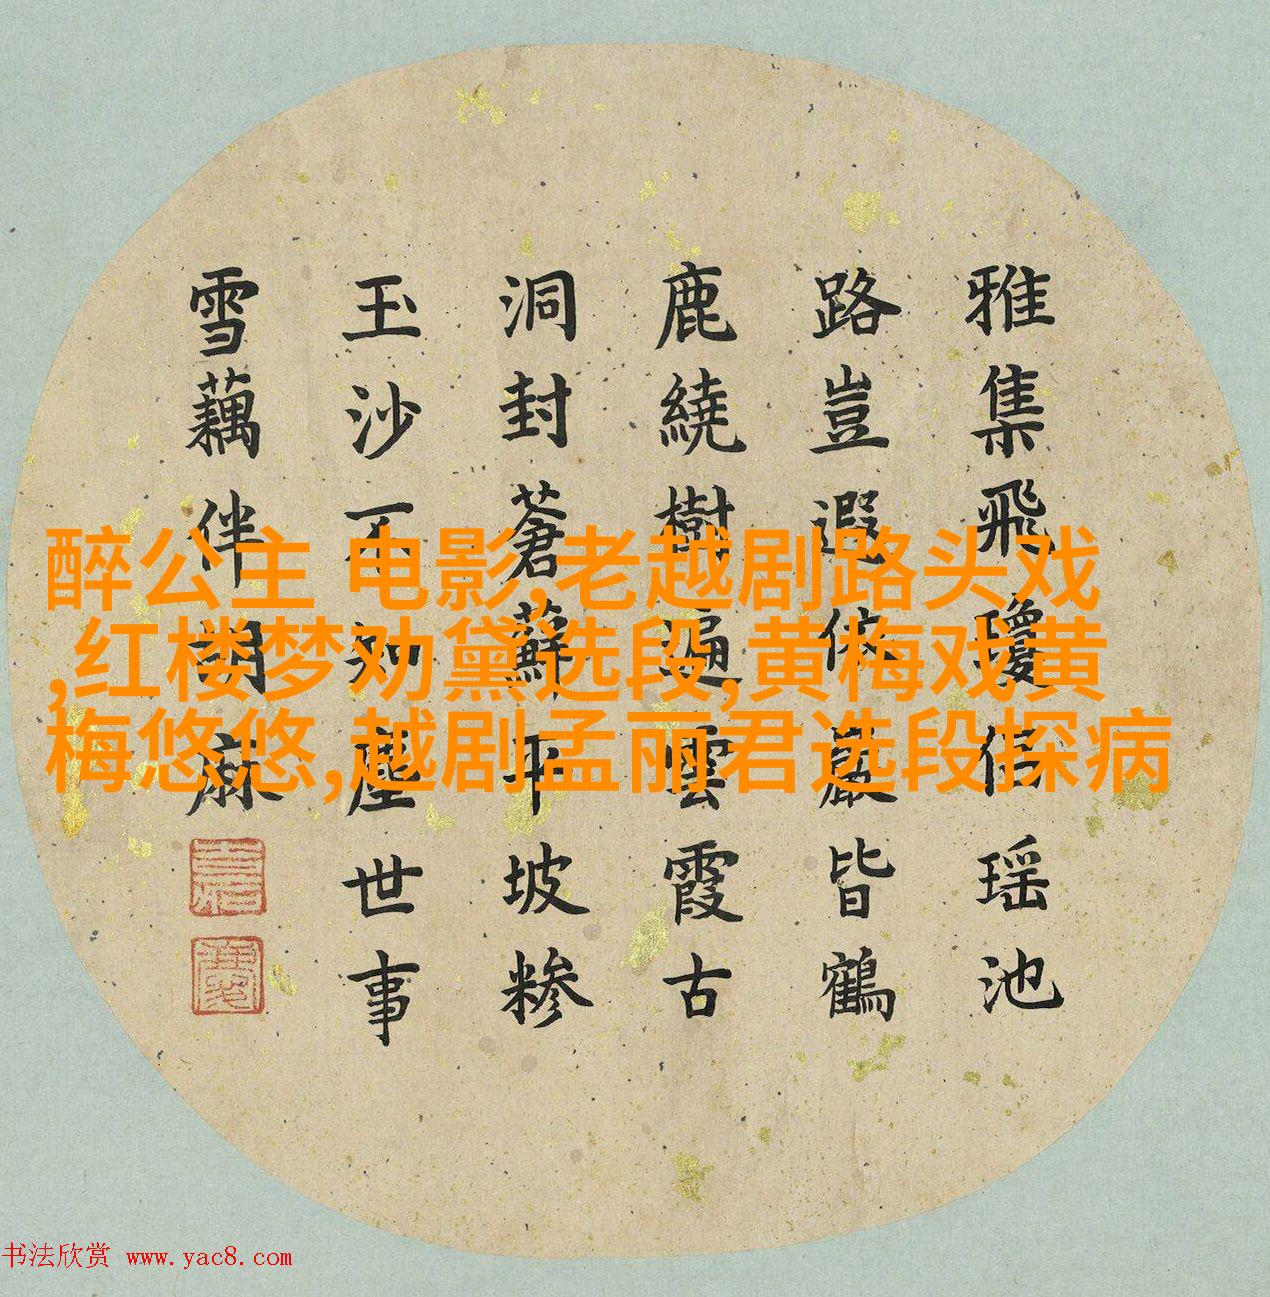 雅集飛瓊侶瑶池
路豈遐皆鶴
鹿繞樹遍雲霞古
洞封蒼蘚平坡糁
玉沙不知塵世事
雪藕伴胡麻
醉公主 电影,老越剧路头戏
,红楼梦劝黛选段,黄梅戏黄
梅悠悠,越剧孟丽君选段探病
书法欣赏 www.yac8.com